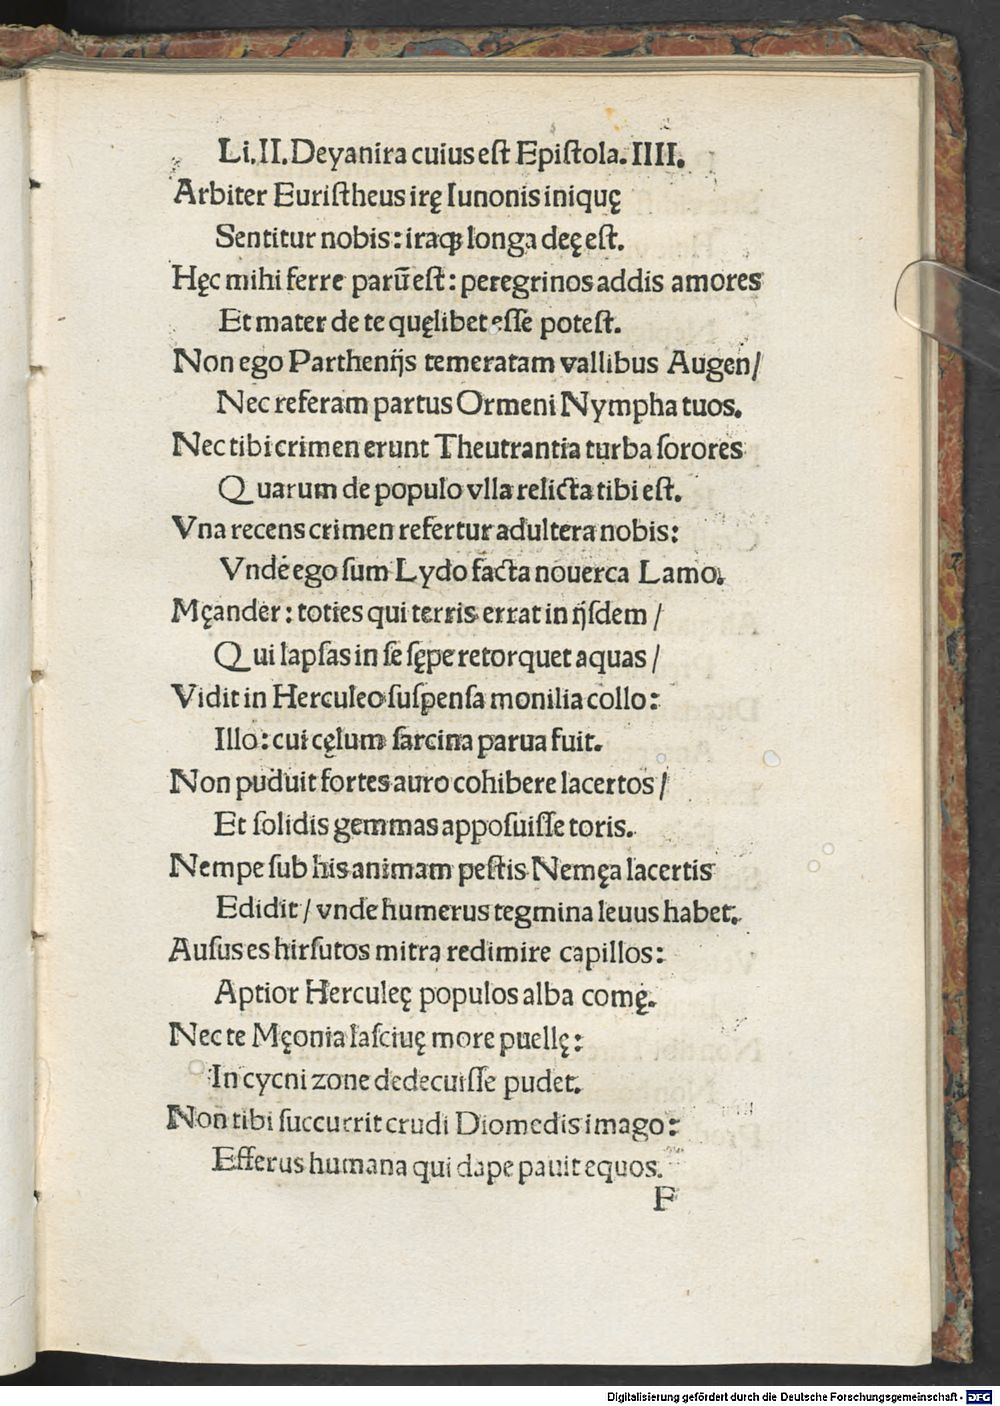 Li.II.Deyanira cuius eſt Epiſtola.IIII.
Arbiter Euriſtheus irę Iunonis iniquę
Sentitur nobis: iraqꝫ longa deę eſt.
Hęc mihi ferre parũ eſt: peregrinos addis amores
Et mater de te quęlibet eſſe poteſt.
Non ego Parthenĳs temeratam vallibus Augen/
Nec referam partus Ormeni Nympha tuos.
Nec tibi crimen erunt Theutrantia turba ſorores
Quarum de populo vlla relicta tibi eſt.
Vna recens crimen refertur adultera nobis:
Vnde ego ſum Lydo facta nouerca Lamo.
Męander: toties qui terris errat in ĳſdem/
Qui lapſas in ſe ſępe retorquet aquas/
Vidit in Herculeo ſuſpenſa monilia collo:
Illo: cui cęlum ſarcina parua fuit.
Non puduit fortes auro cohibere lacertos/
Et ſolidis gemmas appoſuiſſe toris.
Nempe ſub his animam peſtis Nemęa lacertis
Edidit/ vnde humerus tegmina leuus habet.
Auſus es hirſutos mitra redimire capillos:
Aptior Herculeę populos alba comę.
Nec te Męonia laſciuę more puellę:
In cycni zone dedecuiſſe pudet.
Non tibi ſuccurrit crudi Diomedis imago:
Efferus humana qui dape pauit equos.
F
Digitalisierung gefördert durch die Deutsche Forschungsgemeinschaft - DFG